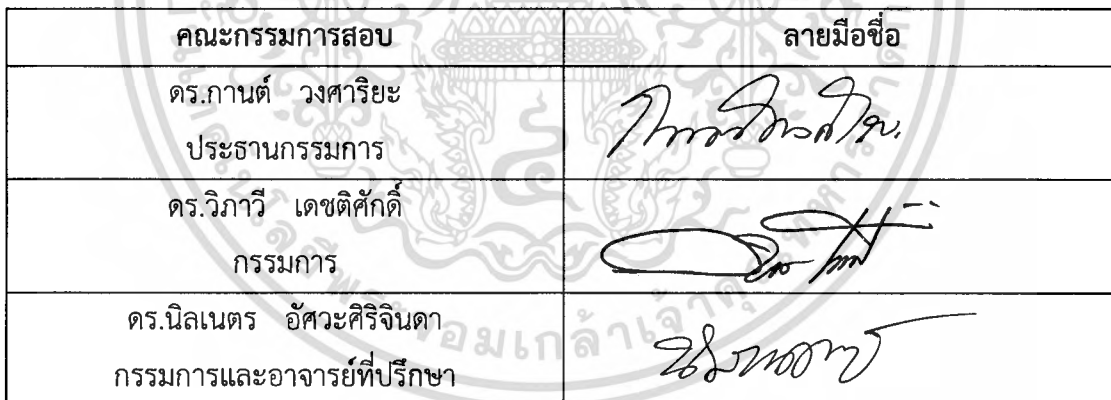 คณะกรรมการสอบ ลายมือชื่อ
ดร.กานต์ วงศาริยะ
ประธานกรรมการ
ดร.วิภาวี เดชติศักดิ์
กรรมการ
ดร.นิลเนตร อัศวะศิริจินดา
กรรมการและอาจารย์ที่ปรึกษา